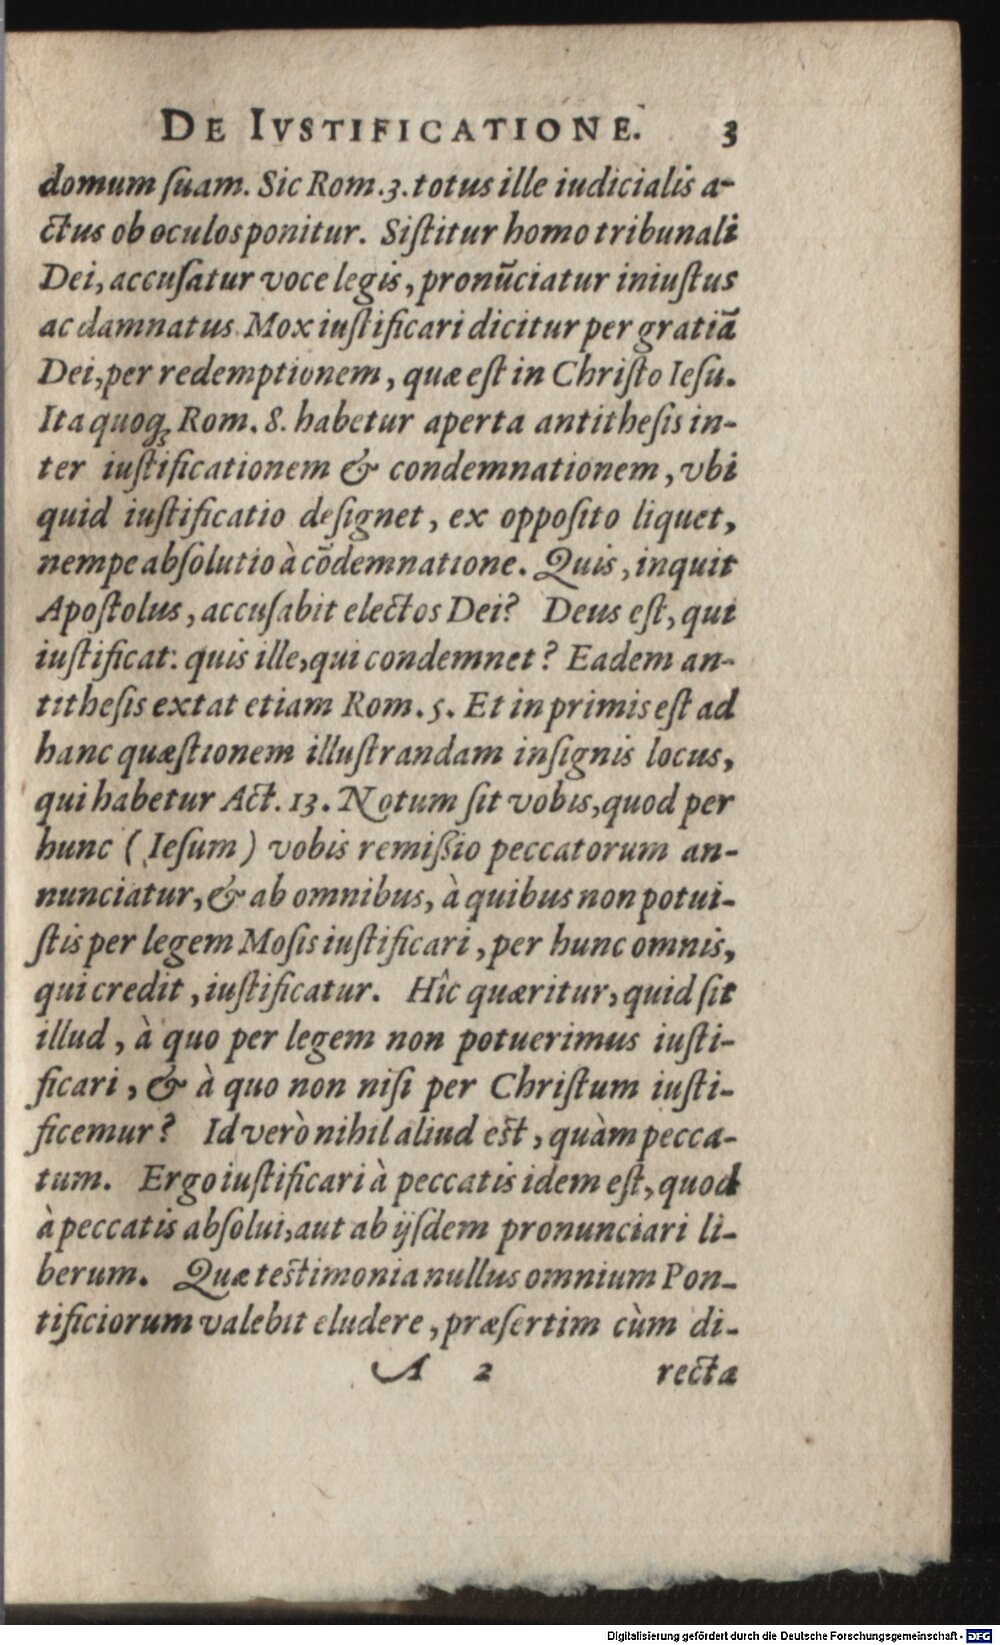 DE IVSTIFICATIONE. 3
domum ſuam. Sic Rom. 3. totus ille iudicialis a-
ctus ob oculos ponitur. Siſtitur homo tribunali
Dei, accuſatur voce legis, pronūciatur iniuſtus
ac damnatus. Mox iuſtificari dicitur per gratiā
Dei, per redemptionem, quæ eſt in Chriſto Ieſu.
Ita quoq; Rom. 8. habetur aperta antitheſis in-
ter iuſtificationem & condemnationem, vbi
quid iuſtificatio deſignet, ex oppoſito liquet,
nempe abſolutio à cōdemnatione. Quis, inquit
Apoſtolus, accuſabit electos Dei? Deus eſt, qui
iuſtificat: quis ille, qui condemnet? Eadem an-
titheſis extat etiam Rom. 5. Et in primis eſt ad
hanc quæſtionem illuſtrandam inſignis locus,
qui habetur Act. 13. Notum ſit vobis, quod per
hunc (Ieſum) vobis remiſsio peccatorum an-
nunciatur, & ab omnibus, à quibus non potui-
ſtis per legem Moſis iuſtificari, per hunc omnis,
qui credit, iuſtificatur. Hîc quæritur, quid ſit
illud, à quo per legem non potuerimus iuſti-
ficari, & à quo non niſi per Chriſtum iuſti-
ficemur? Id verò nihil aliud eſt, quàm pecca-
tum. Ergo iuſtificari à peccatis idem eſt, quod
à peccatis abſolui, aut ab ijſdem pronunciari li-
berum. Quæ teſtimonia nullus omnium Pon-
tificiorum valebit eludere, præſertim cùm di-
A 2 recta
Digitalisierung gefördert durch die Deutsche Forschungsgemeinschaft - DFG